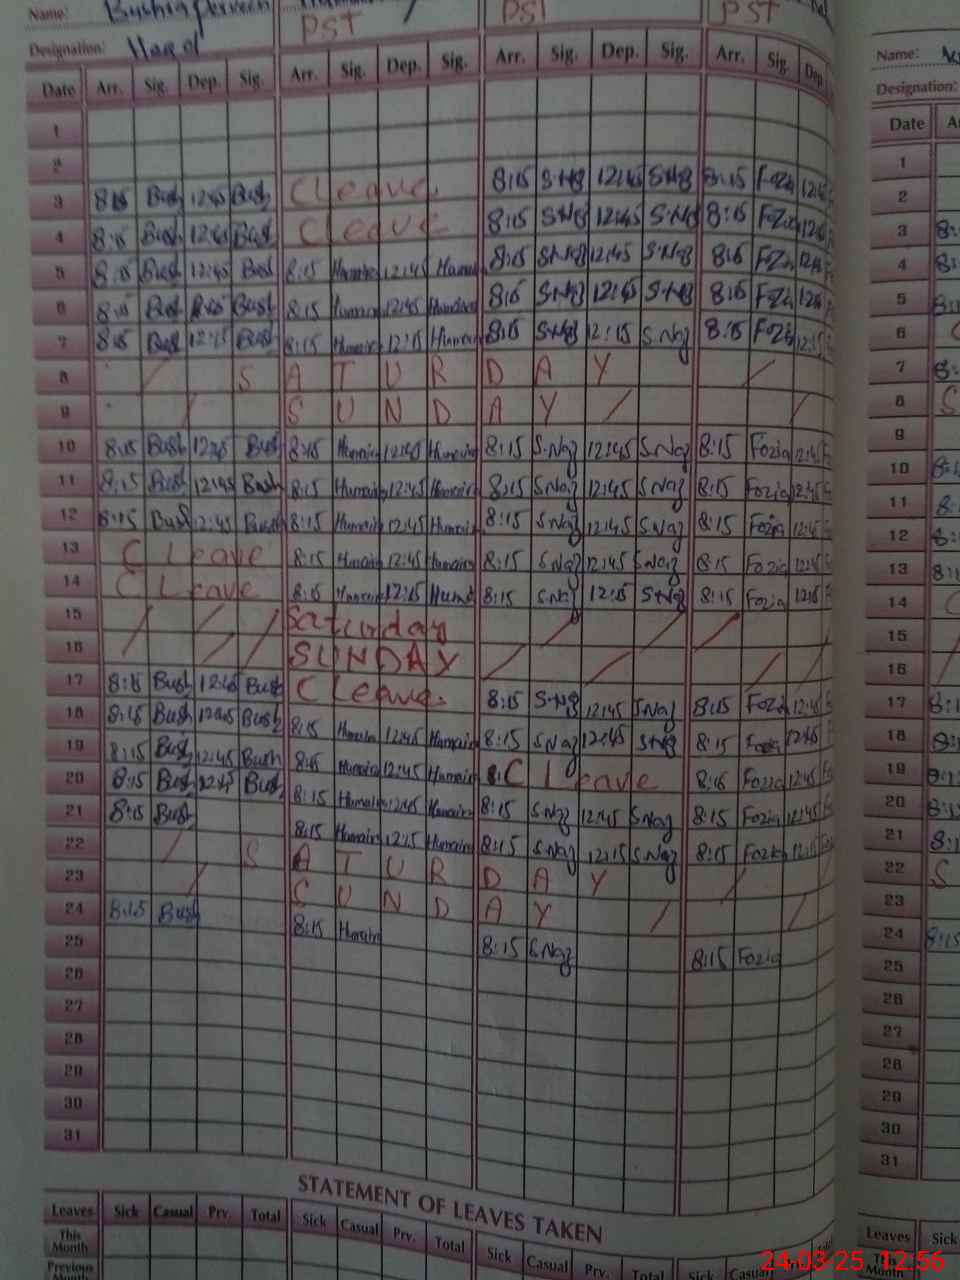 Name: Bushra Perveen
Designation: Head PST PST PST
Date Arr. Sig. Dep. Sig. Arr. Sig. Dep. Sig. Arr. Sig. Dep. Sig. Arr. Sig. Dep
1
2
3 8:15 Bush 12:45 Bush C Leave. 8:15 S.Naz 12:45 S.Naz 8:15 Fozia 12:45
4 8:15 Bush 12:45 Bush C Leave 8:15 S.Naz 12:45 S.Naz 8:15 Fozia 12:45
5 8:15 Bush 12:45 Bush 8:15 Humaira 12:45 Humai 8:15 S.Naz 12:45 S.Naz 8:15 Fozia 12:45
6 8:15 Bush 12:45 Bush 8:15 Humaira 12:45 Humaira 8:15 S.Naz 12:45 S.Naz 8:15 Fozia 12:45
7 8:15 Bush 12:15 Bush 8:15 Humaira 12:15 Humaira 8:15 S.Naz 12:15 S.Naz 8:15 Fozia 12:15
8 / S A T U R D A Y /
9 / S U N D A Y / /
10 8:15 Bush 12:45 Bush 8:15 Humaira 12:45 Humaira 8:15 S.Naz 12:45 S.Naz 8:15 Fozia 12:45
11 8:15 Bush 12:45 Bush 8:15 Humaira 12:45 Humaira 8:15 S.Naz 12:45 S.Naz 8:15 Fozia 12:45
12 8:15 Bush 12:45 Bush 8:15 Humaira 12:45 Humaira 8:15 S.Naz 12:45 S.Naz 8:15 Fozia 12:45
13 C Leave 8:15 Humaira 12:45 Humaira 8:15 S.Naz 12:45 S.Naz 8:15 Fozia 12:45
14 C Leave 8:15 Humaira 12:15 Humai 8:15 S.Naz 12:15 S.Naz 8:15 Fozia 12:15
15 / / / Saturday / / /
16 / / / SUNDAY / / / /
17 8:15 Bush 12:45 Bush C Leave. 8:15 S.Naz 12:45 S.Naz 8:15 Fozia 12:45
18 8:15 Bush 12:45 Bush 8:15 Humaira 12:45 Humaira 8:15 S.Naz 12:45 S.Naz 8:15 Fozia 12:45
19 8:15 Bush 12:45 Bush 8:15 Humaira 12:45 Humaira C Leave 8:15 Fozia 12:45
20 8:15 Bush 12:45 Bush 8:15 Humaira 12:45 Humaira 8:15 S.Naz 12:45 S.Naz 8:15 Fozia 12:45
21 8:15 Bush 8:15 Humaira 12:15 Humaira 8:15 S.Naz 12:15 S.Naz 8:15 Fozia 12:15
22 / S A T U R D A Y /
23 / S U N D A Y / /
24 8:15 Bush 8:15 Humaira 8:15 S.Naz 8:15 Fozia
25
26
27
28
29
30
31
STATEMENT OF LEAVES TAKEN
Leaves Sick Casual Prv. Total Sick Casual Prv. Total Sick Casual Prv. Total Sick Casual
This Month
Previous Month
Name:
Designation:
Date
1
2
3 8:
4 8:
5 8:
6 C
7 8:
8 S
9
10 8:1
11 8:
12 8:
13 8:1
14 C
15
16
17 8:1
18 8:
19 8:1
20 8:1
21 8:1
22 S
23
24 8:15
25
26
27
28
29
30
31
Leaves Sick
This Month
24-03-25, 12:56